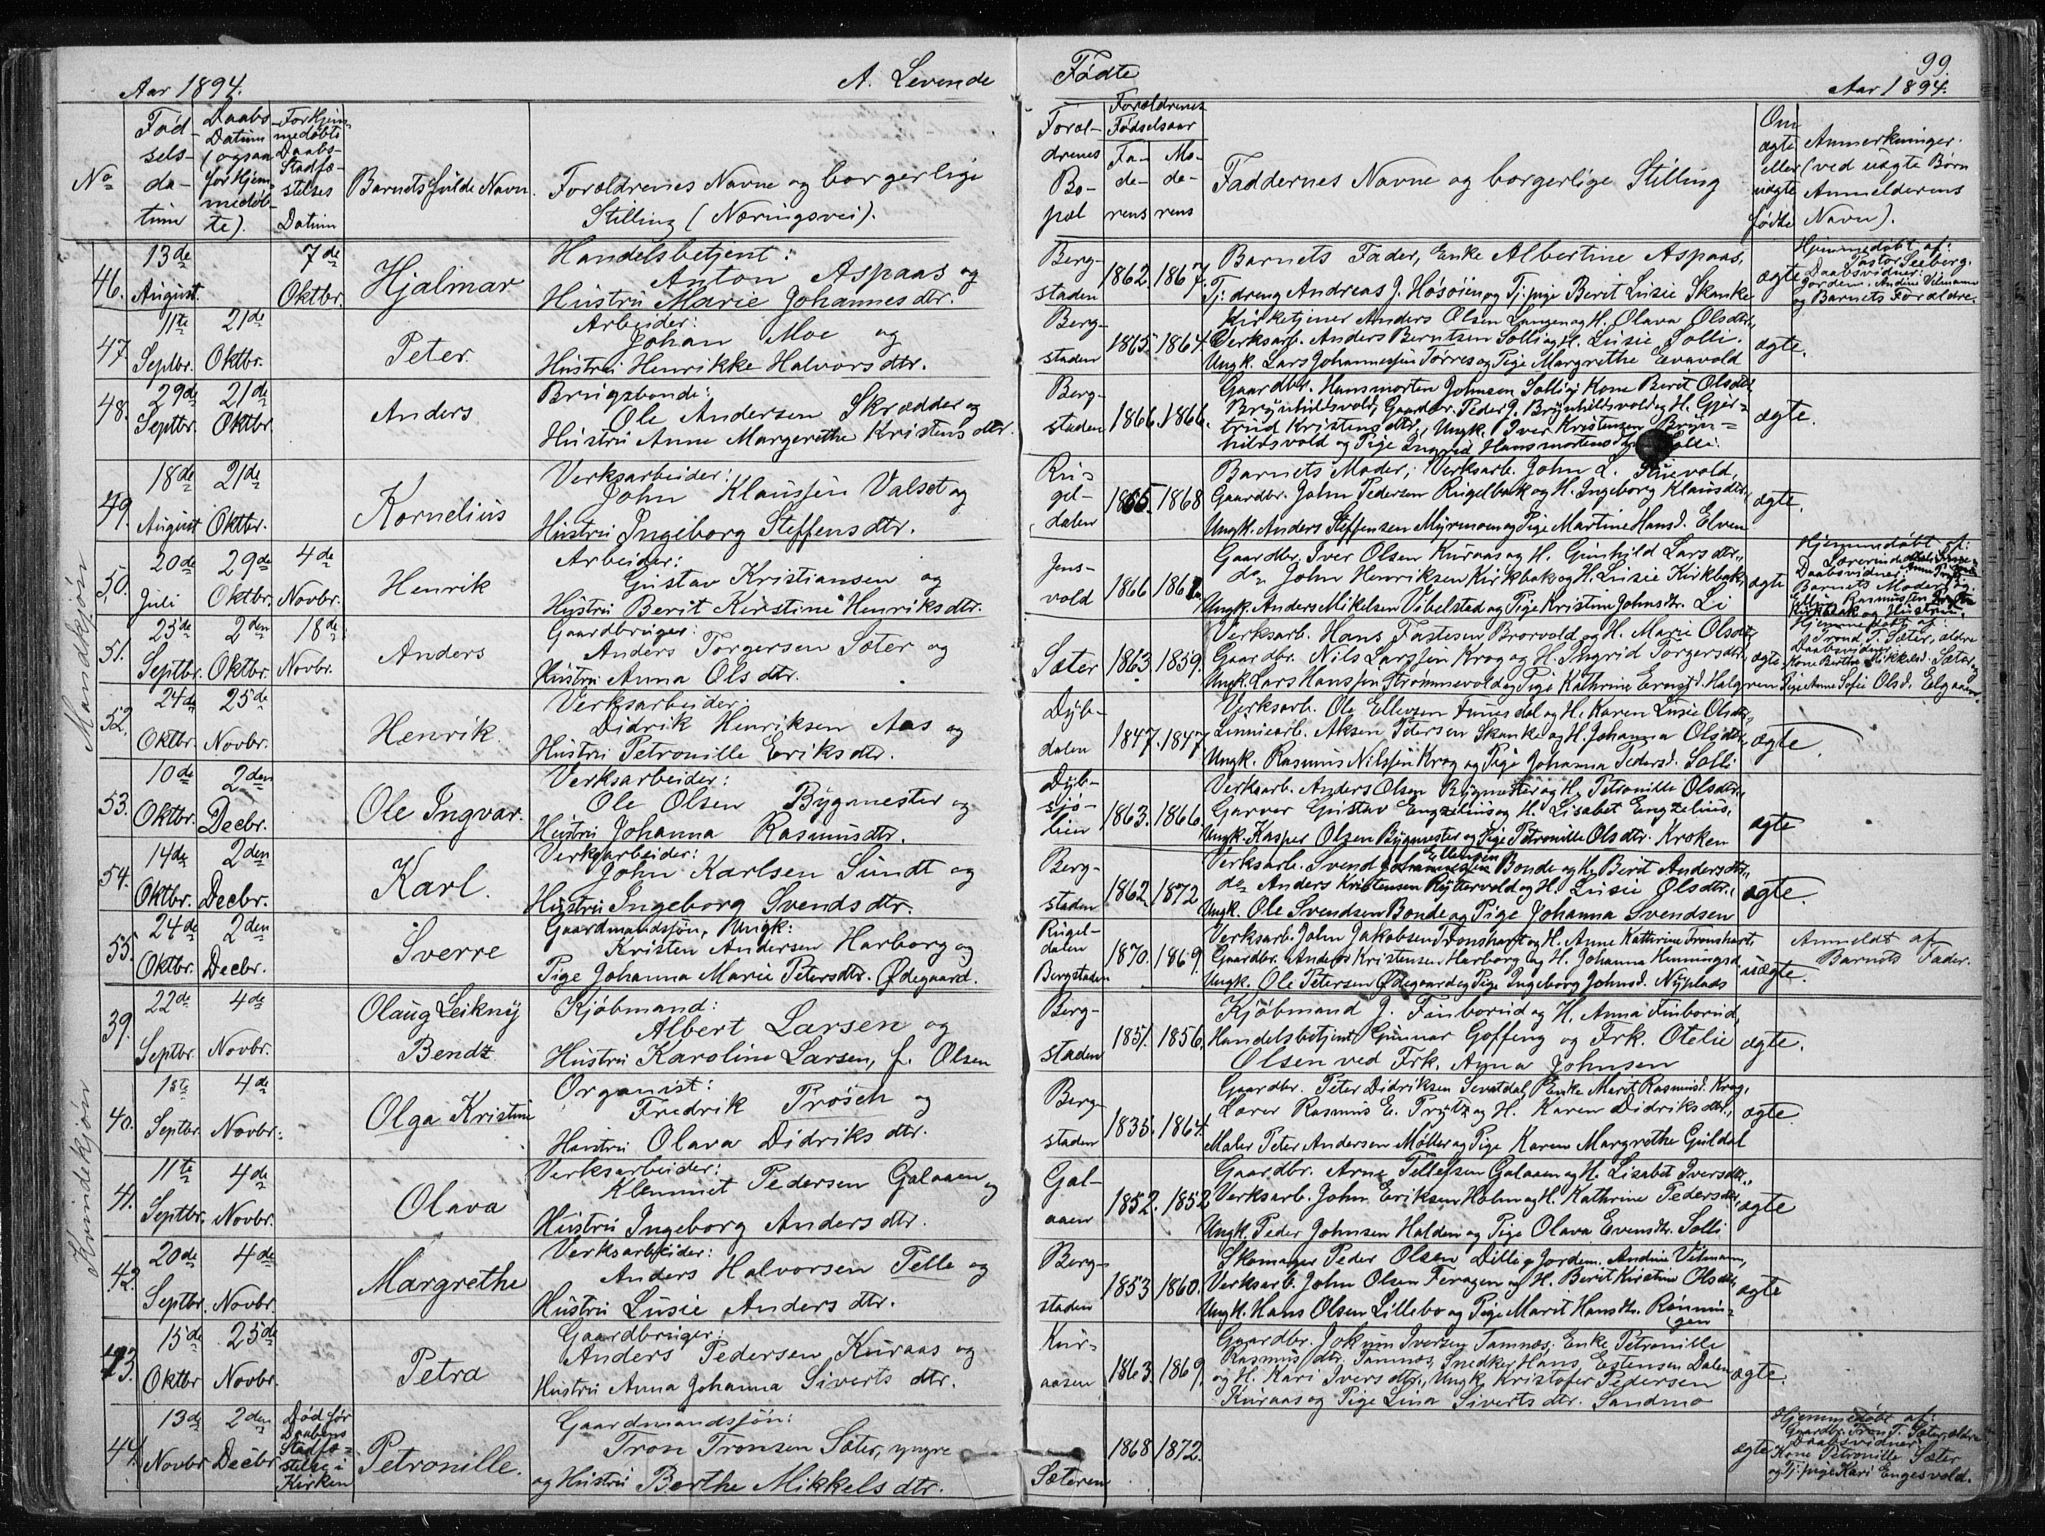 Aar 1894.
A. Levende
Fødte
99.
Aar 1894.
No
Fødselsdatum
Daabs Datum (ogsaa for Hjemmedøbte).
For Hjemmedøbte Daabs-Stadfæstelses Datum
Barnets fulde Navn.
Forældrenes Navne og borgerlige
Stilling (Næringsvei).
Forældrenes Bopæl
Forældrenes Fødselsaar
Faderens
Moderens
Faddernes Navne og borgerlige Stilling
Om ægte eller uægte fødte
Anmerkninger.
(ved uægte Børn
Anmelderens
Navn).
Mandkjøn
46. 13de August. 7de Oktbr. Hjalmar
Handelsbetjent:
Anton Aspaas og
Hustru Marie Johannesdtr.
Bergstaden 1862. 1867.
Barnets Fader, Enke Albertine Aspaas,
Tj: dreng Andreas J. Hosøien og Tj: pige Berit Lusie Skanke
ægte
Hjemmedøbt af:
Pastor Seeberg.
Daabsvidner:
Jordem. Andine Vilmann
og Barnets Forældre.
47. 11te Septbr. 21de Oktbr. Peter.
Arbeider:
Johan Moe og
Hustru Henrikke Halvorsdtr.
Bergstaden 1865. 1864.
Kirketjener Anders Olsen Langen og H. Olava Olsdtr.,
Verksarb. Anders Berntsen Solli og H. Lusie Solli.
Ungk. Lars Johannessen Tørres og Pige Margrethe Evavold
ægte.
48. 29de Septbr. 21de Oktbr. Anders
Brugsbonde:
Ole Andersen Skrædder og
Hustru Anne Margrethe Kristensdtr.
Bergstaden 1866. 1866.
Gaardbr. Hansmorten Johnsen Solli og Kone Berit Olsdtr
Brynhildsvold, Gaardbr. Peder J. Brynhildsvold og H. Gjer-
trud Kristensdtr., Ungk. Iver Kristensen Bryn-
hildsvold og Pige Ingrid Hansmortensdtr. Solli.
ægte.
49. 18de August 21de Oktbr. Kornelius
Verksarbeider:
John Klaussen Valset og
Hustru Ingeborg Steffensdtr.
Rugeldalen 1865. 1868
Barnets Moder, Verksarb. John L. Ruevold,
Gaardbr. John Pedersen Rugelbak og H. Ingeborg Klausdtr.,
Ungk. Anders Steffensen Myrmoen og Pige Martine Hansd. Elven
ægte.
50. 20de Juli 29de Oktbr. 4de Novbr. Henrik
Arbeider:
Gustav Kristiansen og
Hustru Berit Kirstine Henriksdtr.
Jensvold 1866
Gaardbr. Iver Olsen Kuraas og H. Gunhild Larsdtr.,
do. John Henriksen Kirkbak og H. Lusie Kirkbak,
Ungk. Anders Mikelsen Vibelstad og Pige Kristine Johnsdtr. Li
ægte
Hjemmedøbt af:
Daabsvidner:
Barnets Moder,
Kirkbak og Hustru.
51. 25de Septbr. 2den Oktbr. 18de Novbr. Anders
Gaardbruger:
Anders Torgersen Sæter og
Hustru Anna Olsdtr.
Sæter 1863. 1859.
Verksarb. Hans Fastesen Brorvold og H. Marie Olsdtr,
Gaardbr. Nils Larssen Krog og H. Ingrid Torgersdtr.,
Ungk. Lars Hanssen Strømmevold og Pige Kathrine Ernstd. Halgren
ægte
Hjemmedøbt af:
Trond T. Sæter, ældre
Daabsvidner:
Kone Berthe Mikkelsd. Sæter og
Pige Anne Sofie Olsd. Elgaaen.
52. 24de Oktbr. 25de Novbr. Henrik
Verksarbeider:
Didrik Henriksen Aas og
Hustru Petronille Eriksdtr.
Dybdalen 1847. 1847.
Verksarb. Ole Ellevsen Funesdal og H. Karen Lusie Olsdtr.,
Linniearb. Aksen Petersen Skanke og H. Johanna Olsdtr.,
Ungk. Rasmus Nilssen Krog og Pige Johanna Pedersd. Solli
ægte.
53. 10de Oktbr. 2den Decbr. Ole Ingvar.
Verksarbeider:
Ole Olsen Bygmester og
Hustru Johanna Rasmusdtr.
Dybsjølien 1863. 1866.
Verksarb. Anders Olsen Bygmester og H. Petronille Olsdtr.,
Garver Gustav Engzelius og H. Lisabet Engzelius,
Ungk. Kasper Olsen Bygmester og Pige Petronille Olsdtr. Kroken
ægte
54. 14de Oktbr. 2den Decbr. Karl.
Verksarbeider:
John Karlsen Sundt og
Hustru Ingeborg Svendsdtr.
Bergstaden 1862. 1872
Verksarb. Svend Ellevsen Bonde og H. Berit Andersdtr.,
do. Anders Kristensen Ryttervold og H. Lusie Olsdtr.,
Ungk. Ole Svendsen Bonde og Pige Johanna Svendsen
ægte.
55. 24de Oktbr. 2den Decbr. Sverre
Gaardmandssøn, Ungk:
Kristen Andersen Harborg og
Pige Johanna Marie Petersdtr. Ødegaard.
Rugeldalen Bergstaden 1870. 1869.
Verksarb. John Jakobsen Tronshart og H. Anne Kathrine Tronshart,
Gaardbr. Anders Kristensen Harborg og H. Johanna Hemmingsd.
Ungk. Ole Petersen Ødegaard og Pige Ingeborg Johnsd. Nyplads
uægte.
Anmeldt af
Barnets Fader.
Kvindekjøn
39. 22de Septbr. 4de Novbr. Olaug Leikny Bendz
Kjøbmand:
Albert Larsen og
Hustru Karoline Larsen, f. Olsen
Bergstaden 1851. 1856.
Kjøbmand J. Finborud og H. Anna Finborud,
Handelsbetjent Gunnar Goffeng og Frk. Otelie
Olsen ved Frk. Anna Johnsen
ægte.
40. 1ste Septbr. 4de Novbr. Olga Kristine
Organist:
Fredrik Prøsch og
Hustru Olava Didriksdtr.
Bergstaden 1835. 1864.
Gaardbr. Peter Didriksen Sevatdal, Enke Marit Rasmusd. Krog,
Lærer Rasmus E. Prytz og H. Karen Didriksdtr.,
Maler Peter Andersen Møller og Pige Karen Margrethe Guldal
ægte.
41. 11te Septbr. 4de Novbr. Olava
Verksarbeider:
Klemmet Pedersen Galaaen og
Hustru Ingeborg Andersdtr.
Galaaen 1852. 1852
Gaardbr. Arne Tellefsen Galaaen og H. Lisabet Iversdtr.,
Verksarb. John Eriksen Holm og H. Kathrine Pedersdtr.,
Ungk. Peder Johnsen Halden og Pige Olava Evensdtr. Solli
ægte
42. 20de Septbr. 4de Novbr. Margrethe
Verksarbeider:
Anders Halvorsen Telle og
Hustru Lusie Andersdtr.
Bergstaden 1853 1860.
Skomager Peder Olsen Dille og Jordem. Andine Vilmann,
Verksarb. John Olsen Feragen og H. Berit Kristine Olsdtr.,
Ungk. Hans Olsen Lillebo og Pige Marit Hansdtr. Rønnin-
gen
ægte
43. 15de Oktbr 25de Novbr. Petra
Gaardbruger:
Anders Pedersen Kuraas og
Hustru Anna Johanna Sivertsdtr.
Kuraasen 1863. 1869.
Gaardbr. Jokum Iversen Tamnæs, Enke Petronille
Rasmusdtr. Tamnæs, Snedker Hans Estensen Dalen
og H. Kari Iversdtr., Ungk. Kristofer Pedersen
Kuraas og Pige Lina Sivertsdtr. Sandmo
ægte.
44. 13de Novbr 2den Decbr Død før Daabens Stadfæstelse i Kirken Petronille.
Gaardmandssøn:
Tron Tronsen Sæter, yngre
og Hustru Berthe Mikkelsdtr.
Sæteren 1868 1872.
ægte
Hjemmedøbt af:
Gaardbr. Tron T. Sæter, ældre
Daabsvidner:
Kone Petronille Sæter
og Tj. pige Kari Engesvold.